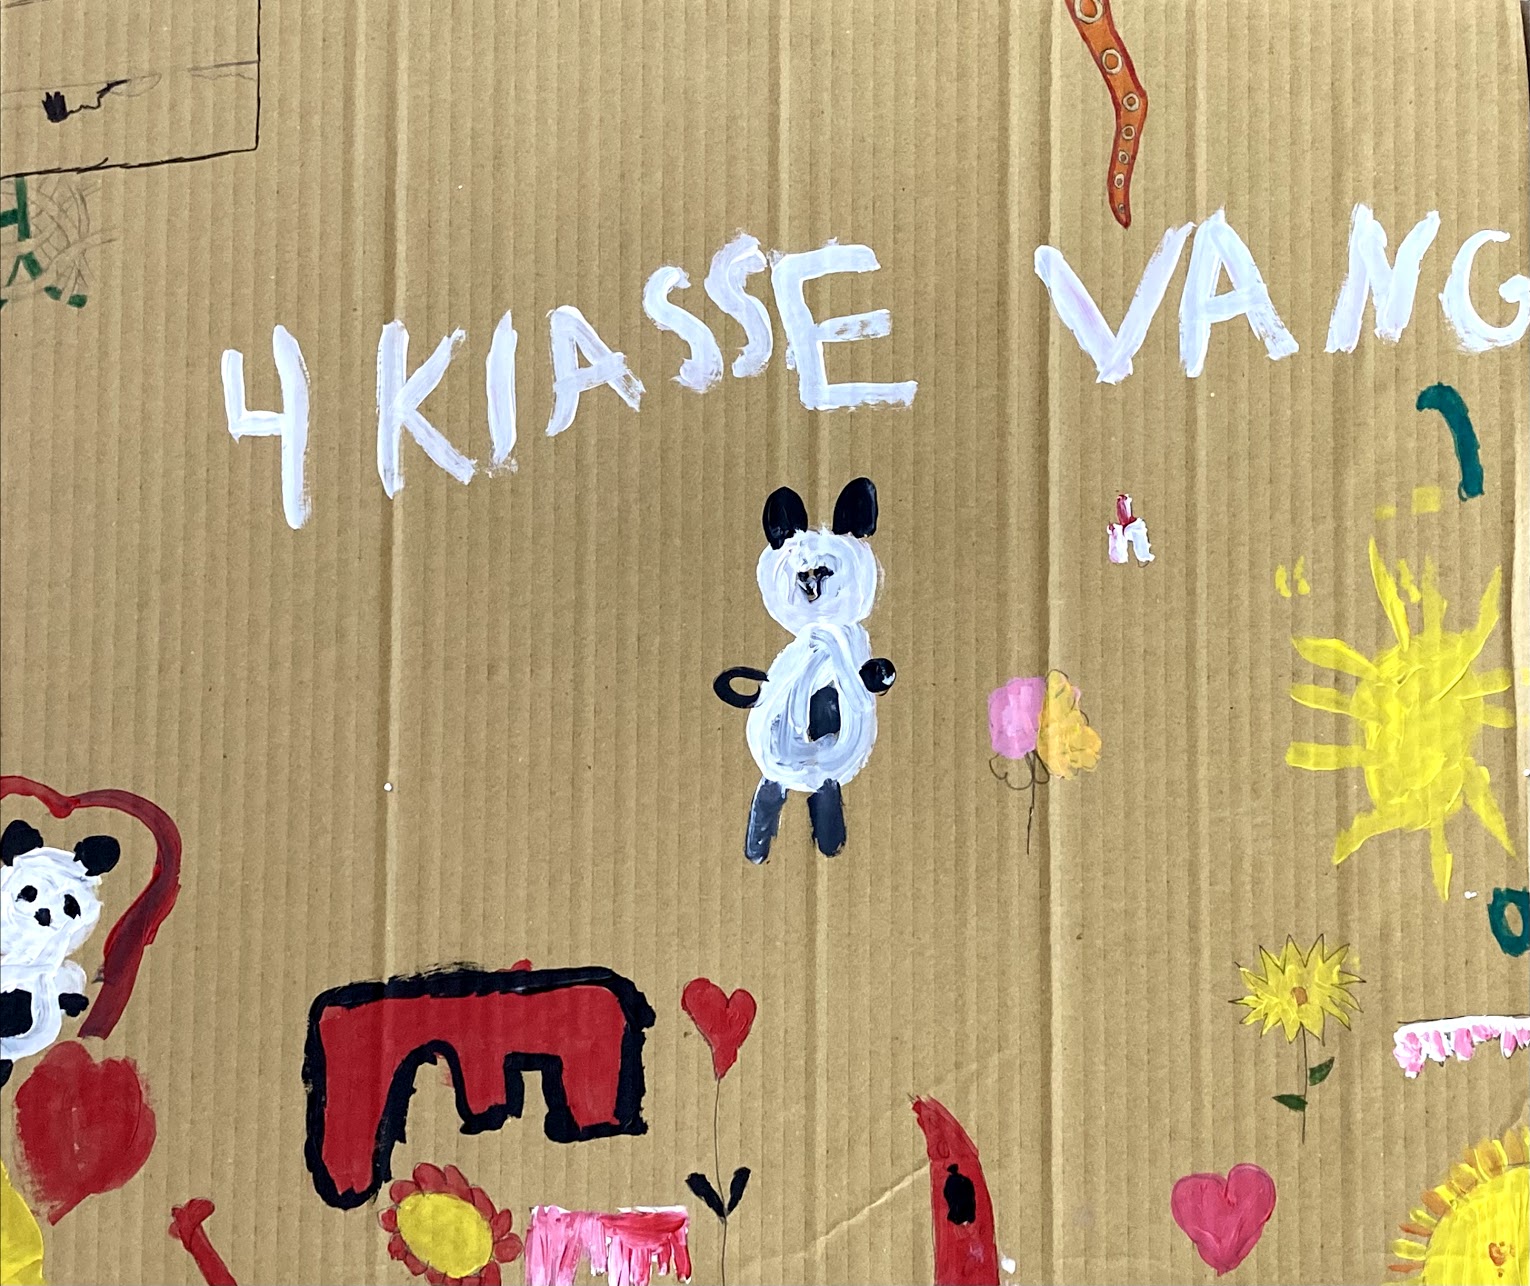 4 KlASSE VANG